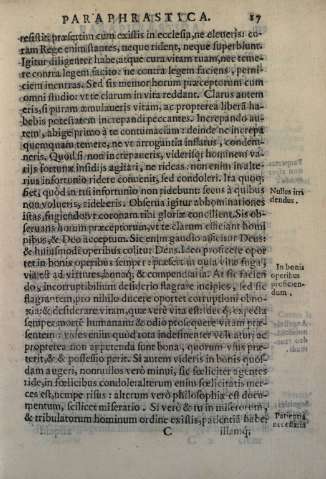 PARAPHRASTICA. 17
resistit: præsertim cum existis in ecclesia, ne eleueris: co-
ram Rege enim stantes, neque rident, neque superbiunt.
Igitur diligenter habe, atque cura vitam tuam, nec teme-
re contra legem facito: ne contra legem faciens, perni-
ciem incurras. Sed sis memor horum præceptorum cum
omni studio: vt te clarum in vita reddant. Clarus autem
eris, si puram æmulaueris vitam, ac propterea liberã ha-
bebis potestatem increpandi peccantes. Increpando au-
tem, abige primo à te contumaciam: deinde ne increpa
quemquam temere, ne vt arrogantia inflatus, condem-
neris. Quod si non increpaueris, videris&#113; hominem va-
rijs fortunæ insidijs agitari, ne rideas. non enim in alte-
rius infortunio ridere conuenit, sed condoleri. Ita quo&#113;
fiet, quòd in tuis infortunio non ridebunt: seens à quibus
non volueris, rideberis. Obserua igitur abhominationes
istas, fugiendo: vt coronam tibi gloriæ concilient. Sis ob-
seruans horum præceptorum, vt te clarum efficiant homi
nibus, & Deo acceptum. Sic enim gaudio afficitur Deus:
& huiusmodi operibus colitur Deus. Ideo proficere opor
tet in bonis operibus semper: præsertim in quia vitæ fuga,
via est ad virtutes, bona&#113;; & compendiaria. At sic facien-
do, incorruptibilium desiderio flagrare incipies, sed sic
flagrantem, pro nihilo ducere oportet corruptioni obno-
xia: & desiderare vitam, quæ verè vita est: ide&#113; & expecta
semper mortẽ humananu & odio prosequere vitam præ-
sentem: vides enim quod rota indesinenter voluatur: ac
propterea non apprehenda sunt bona, quorum vsus præ-
terit, & & possessio perit. Si autem videris in bonis quos-
dam augeri, nonnullos verò minui, sic feliciter agentes
ride, in fœlicibus condole: alterum enim fœlicitatis mer-
ces est, nempe risus: alterum verò philosophiæ est docu-
mentum, scilicet miseratio. Si verò & tu in miserorum,
& tribulatorum hominum ordine existis, patientiã habe:
C illam&#113;;
Nullus irri
dendus.
In bonis
operibus
proficien-
dum.
Patientia
necessaria